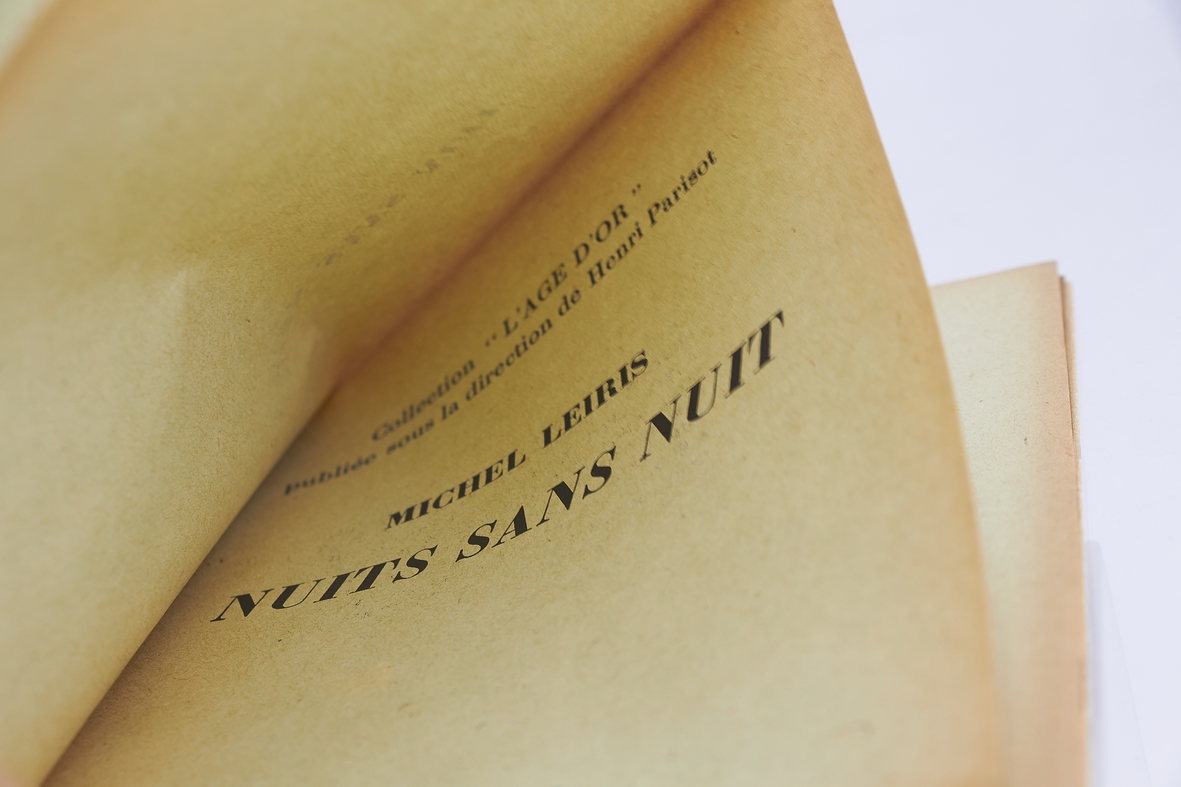 Collection “ L'AGE D'OR ”
publiée sous la direction de Henri Parisot
MICHEL LEIRIS
NUITS SANS NUIT